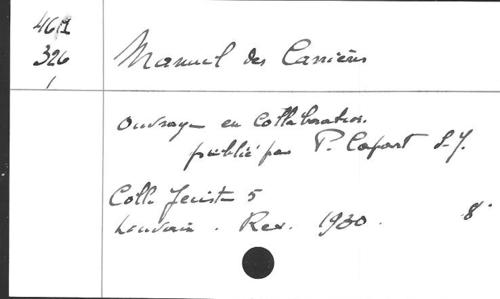 4671
326
1
Manuel des Carrières
Ouvrage en Collaboration.
publié par P. Capart S.J.
Coll. Jeciste 5
Louvain. Rex. 1930. 8°